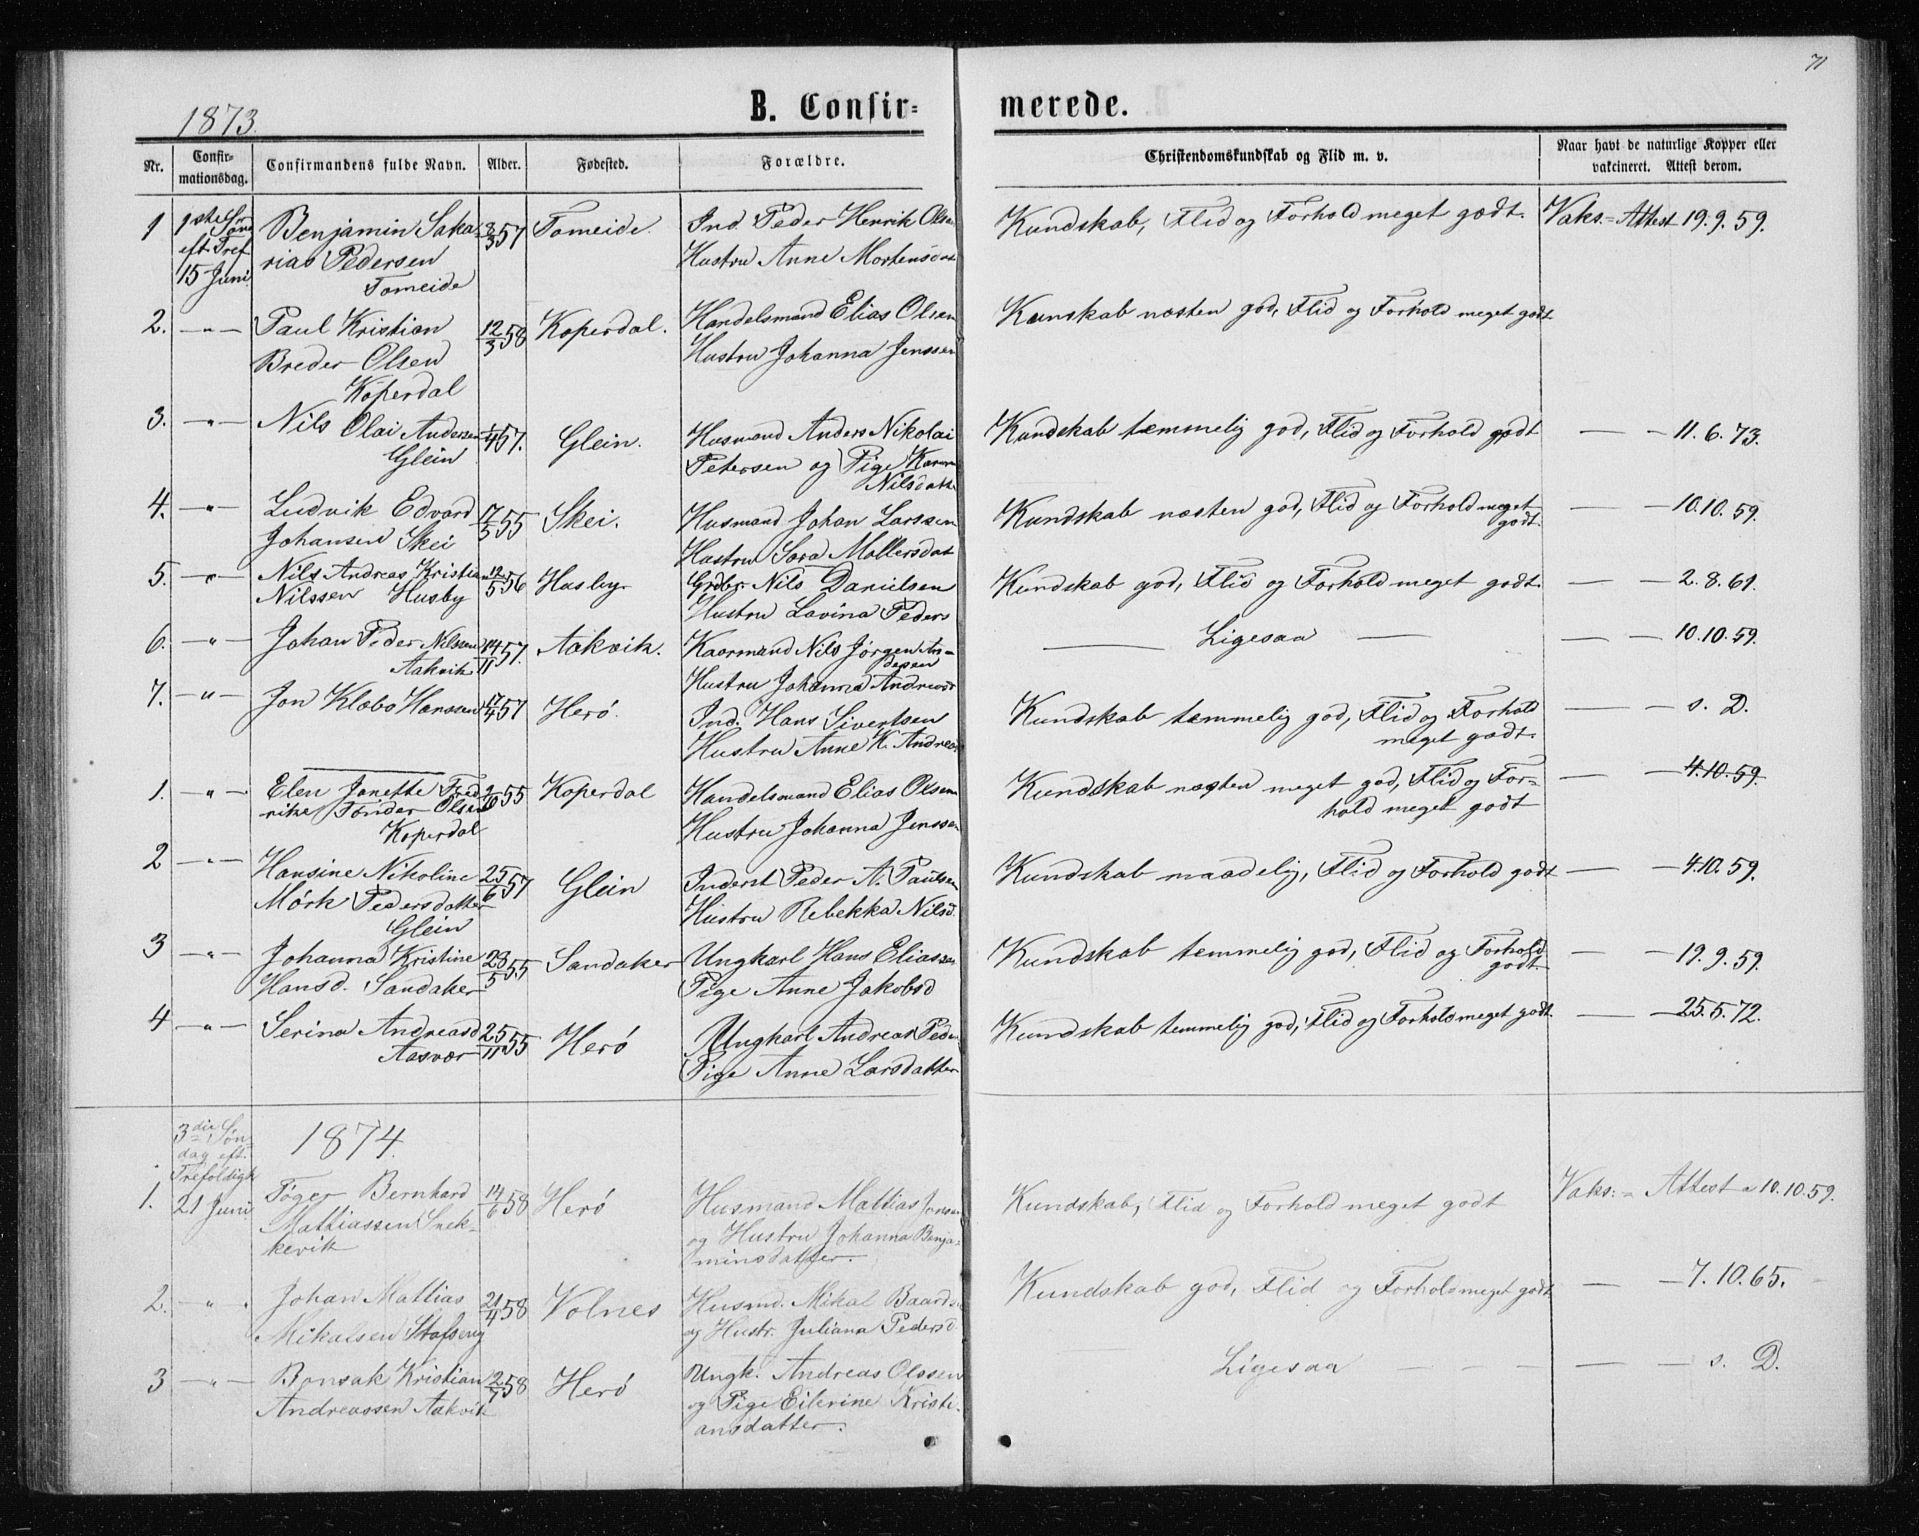 71
1873.
B. Confirmerede.
Nr. Confirmationsdag. Confirmandens fulde Navn. Alder. Fødested. Forældre. Christendomskundskab og Flid m. v. Naar havt de naturlige Kopper eller vakcineret. Attest derom.
1 1ste Sønd Benjamin Saka- 8/3 57 Tomeide. Ind. Peder Henrik Olsen Kundskab, Flid og Forhold meget godt. Vaks.=Attest 19.9.59.
eft. Tref rias Pedersen Hustru Anne Mortensdat
15 Juni Tomeide
2. -"- Paul Kristian 12/3 58 Koperdal. Handelsmand Elias Olsen Kunskab næsten god, Flid og Forhold meget godt
Breder Olsen Hustru Johanna Jenssen
Koperdal
3. -"- Nils Olai Andersen 1/4 57. Glein. Husmand Anders Nikolai Kundskab temmelig god, Flid og Forhold godt — — 11.6.73.
Glein Petersen og Pige Karen
Nilsdatt.
4. -"- Ludvik Edvard 17/5 55 Skei. Husmand Johan Larssen Kundskab næsten god, Flid og Forhold meget — — 10.10.59.
Johansen Skei Hustru Sara Mollersdat godt.
5. -"- Nils Andreas Kristian 12/5 56 Husby Grdbr. Nils Danielsen Kundskab god, Flid og Forhold meget godt. — — 2.8.61.
Nilssen Husby Hustru Lavina Peders
6. -"- Johan Peder Nilssen 14/11 57. Aakvik. Kaarmand Nils Jørgen An- — Ligesaa — — — 10.10.59.
Aakvik dersen
Hustru Johanna Andreasd
7. -"- Jon Klæbo Hanssen 17/4 57 Herö. Ind. Hans Sivertsen Kundskab temmelig god, Flid og Forhold — — s. D.
Hustru Anne K. Andreas meget godt.
1. -"- Elen Janette Fred- 9/10 55 Koperdal Handelsmand Elias Olsen Kundskab næsten meget god, Flid og For- — — 4.10.59.
rike Tønder Olsen Hustru Johanna Jenssen hold meget godt
Koperdal
2 -"- Hansine Nikoline 25/6 57 Glein Inderst Peder A. Paulsen Kundskab maadelig, Flid og Forhold godt — — 4.10.59.
Mørk Pedersdatter Hustru Rebekka Nilsd.
Glein
3 -"- Johanna Kristine 28/5 55 Sandaker Ungkarl Hans Eliassen Kundskab temmelig god, Flid og Forhold — — 19.9.59.
Hansd. Sandaker Pige Anne Jakobsd godt.
4 -"- Serina Andreasd 25/11 55 Herö Ungkarl Andreas Peder Kundskab temmelig god, Flid og Forhold meget godt. — — 25.5.72.
Aasvær Pige Anne Larsdatter
3die Søn- 1874.
dag eft.
Trefoldigh
1. 21 Juni Töger Bernhard 14/6 58 Herö Husmand Mattias Jonsen Kundskab, Flid og Forhold meget godt Vaks.= Attest " 10.10.59.
Mattiassen Snek- og Hustru Johanna Benja-
kevik minsdatter.
2. -"- Johan Mattias 21/4 58 Volnes Husmd. Mikal Baards. Kundskab god, Flid og Forhold meget godt — — 7.10.65.
Mikalsen Stafseng og Hustr. Juliana Pedersd.
3 -"- Bonsak Kristian 2/7 58 Herö Ungk. Andreas Olssen — Ligesaa — — — — — s. D.
Andreassen Aakvik og Pige Eilerine Kristi-
ansdatter.